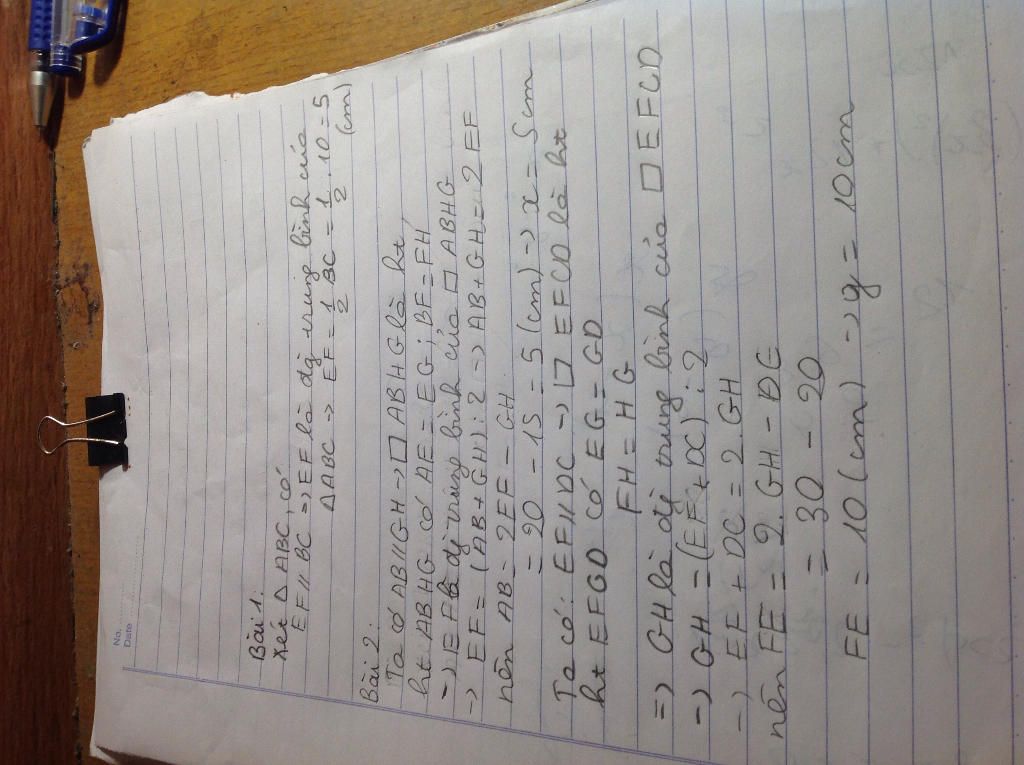 No.
Date
Bài 1:
Xét △ ABC, có
EF // BC => EF là đg trung bình của
△ ABC -> EF = 1/2 BC = 1/2 . 10 = 5
(cm)
Bài 2:
Ta có AB // GH -> □ ABHG là ht,
ht ABHG có AE = EG ; BF = FH
-> EF là đg trung bình của □ ABHG
-> EF = (AB + GH) : 2 -> AB + GH = 2 EF
nên AB = 2EF - GH
= 20 - 15 = 5 (cm) -> x = 5cm
Ta có: EF // DC -> □ EFCD là ht
ht EFGD có EG = GD
FH = HG
=> GH là đg trung bình của □ EFCD
-> GH = (EF + DC) : 2
-> EF + DC = 2. GH
nên FE = 2. GH - DE
= 30 - 20
FE = 10 (cm) -> y = 10cm